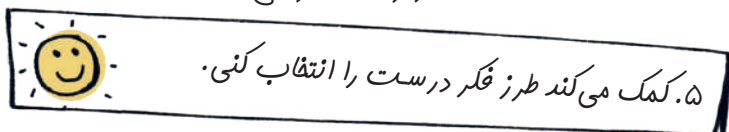 ۵. کمک می‌کند طرز فکر درست را انتخاب کنی.